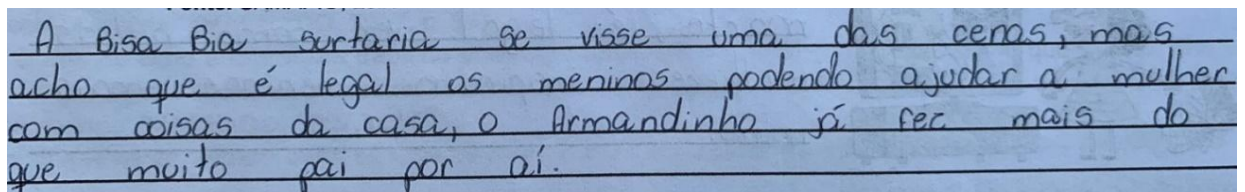 A Bisa Bia surtaria se visse uma das cenas, mas
acho que é legal os meninos podendo ajudar a mulher
com coisas da casa, o Armandinho já fez mais do
que muito pai por aí.